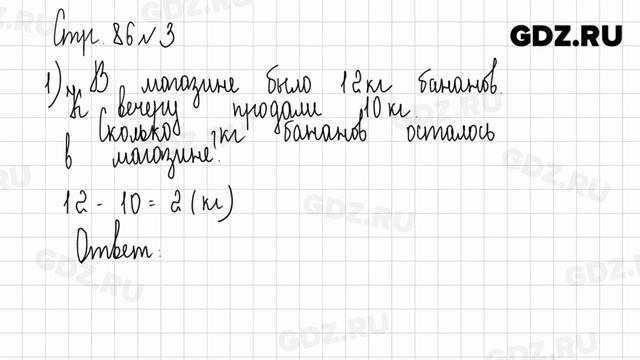 Стр. 86 №3
GDZ.RU
1) В магазине было 12 кг бананов.
К вечеру продали 10 кг.
Сколько кг бананов осталось
в магазине?
12 - 10 = 2 (кг)
Ответ:
GDZ.RU
GDZ.RU
GDZ.RU
GDZ.RU
GDZ.RU
GDZ.RU